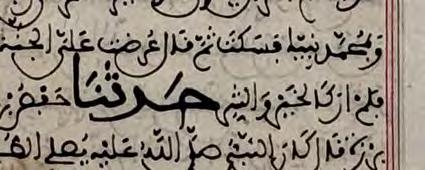 وبمحمد نبيا فسكت ثم قال عرضت علي الجنة
فلم ار كالخير والشر حدثنا حفص بن
برزة قال كان النبي صلى الله عليه يصلي